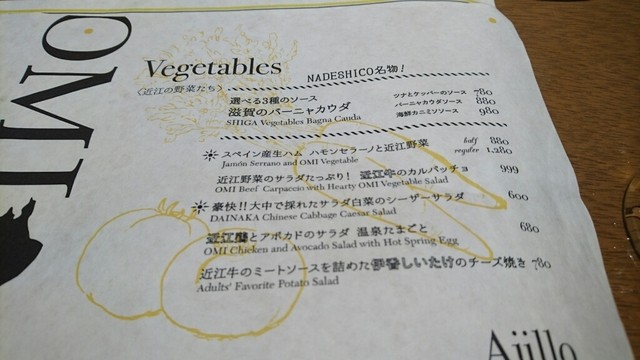 OMI
Vegetables
NADESHICO名物!
(近江の野菜たち)
選べる3種のソース
滋賀のバーニャカウダ
SHIGA Vegetables Bagna Cauda
ツナとケッパーのソース 780
バーニャカウダソース 880
海鮮カニミソソース 980
スペイン産生ハム ハモンセラーノと近江野菜 half 880
Jamón Serrano and OMI Vegetable regular 1,280
近江野菜のサラダたっぷり! 近江牛のカルパッチョ 999
OMI Beef Carpaccio with Hearty OMI Vegetable Salad
豪快!!大中で採れたサラダ白菜のシーザーサラダ 600
DAINAKA Chinese Cabbage Caesar Salad
とアボカドのサラダ 温泉たまごと 680
OMI Chicken and Avocado Salad with Hot Spring Egg
近江牛のミートソースを詰めた しいたけのチーズ焼き 780
Adults' Favorite Potato Salad
Ajillo